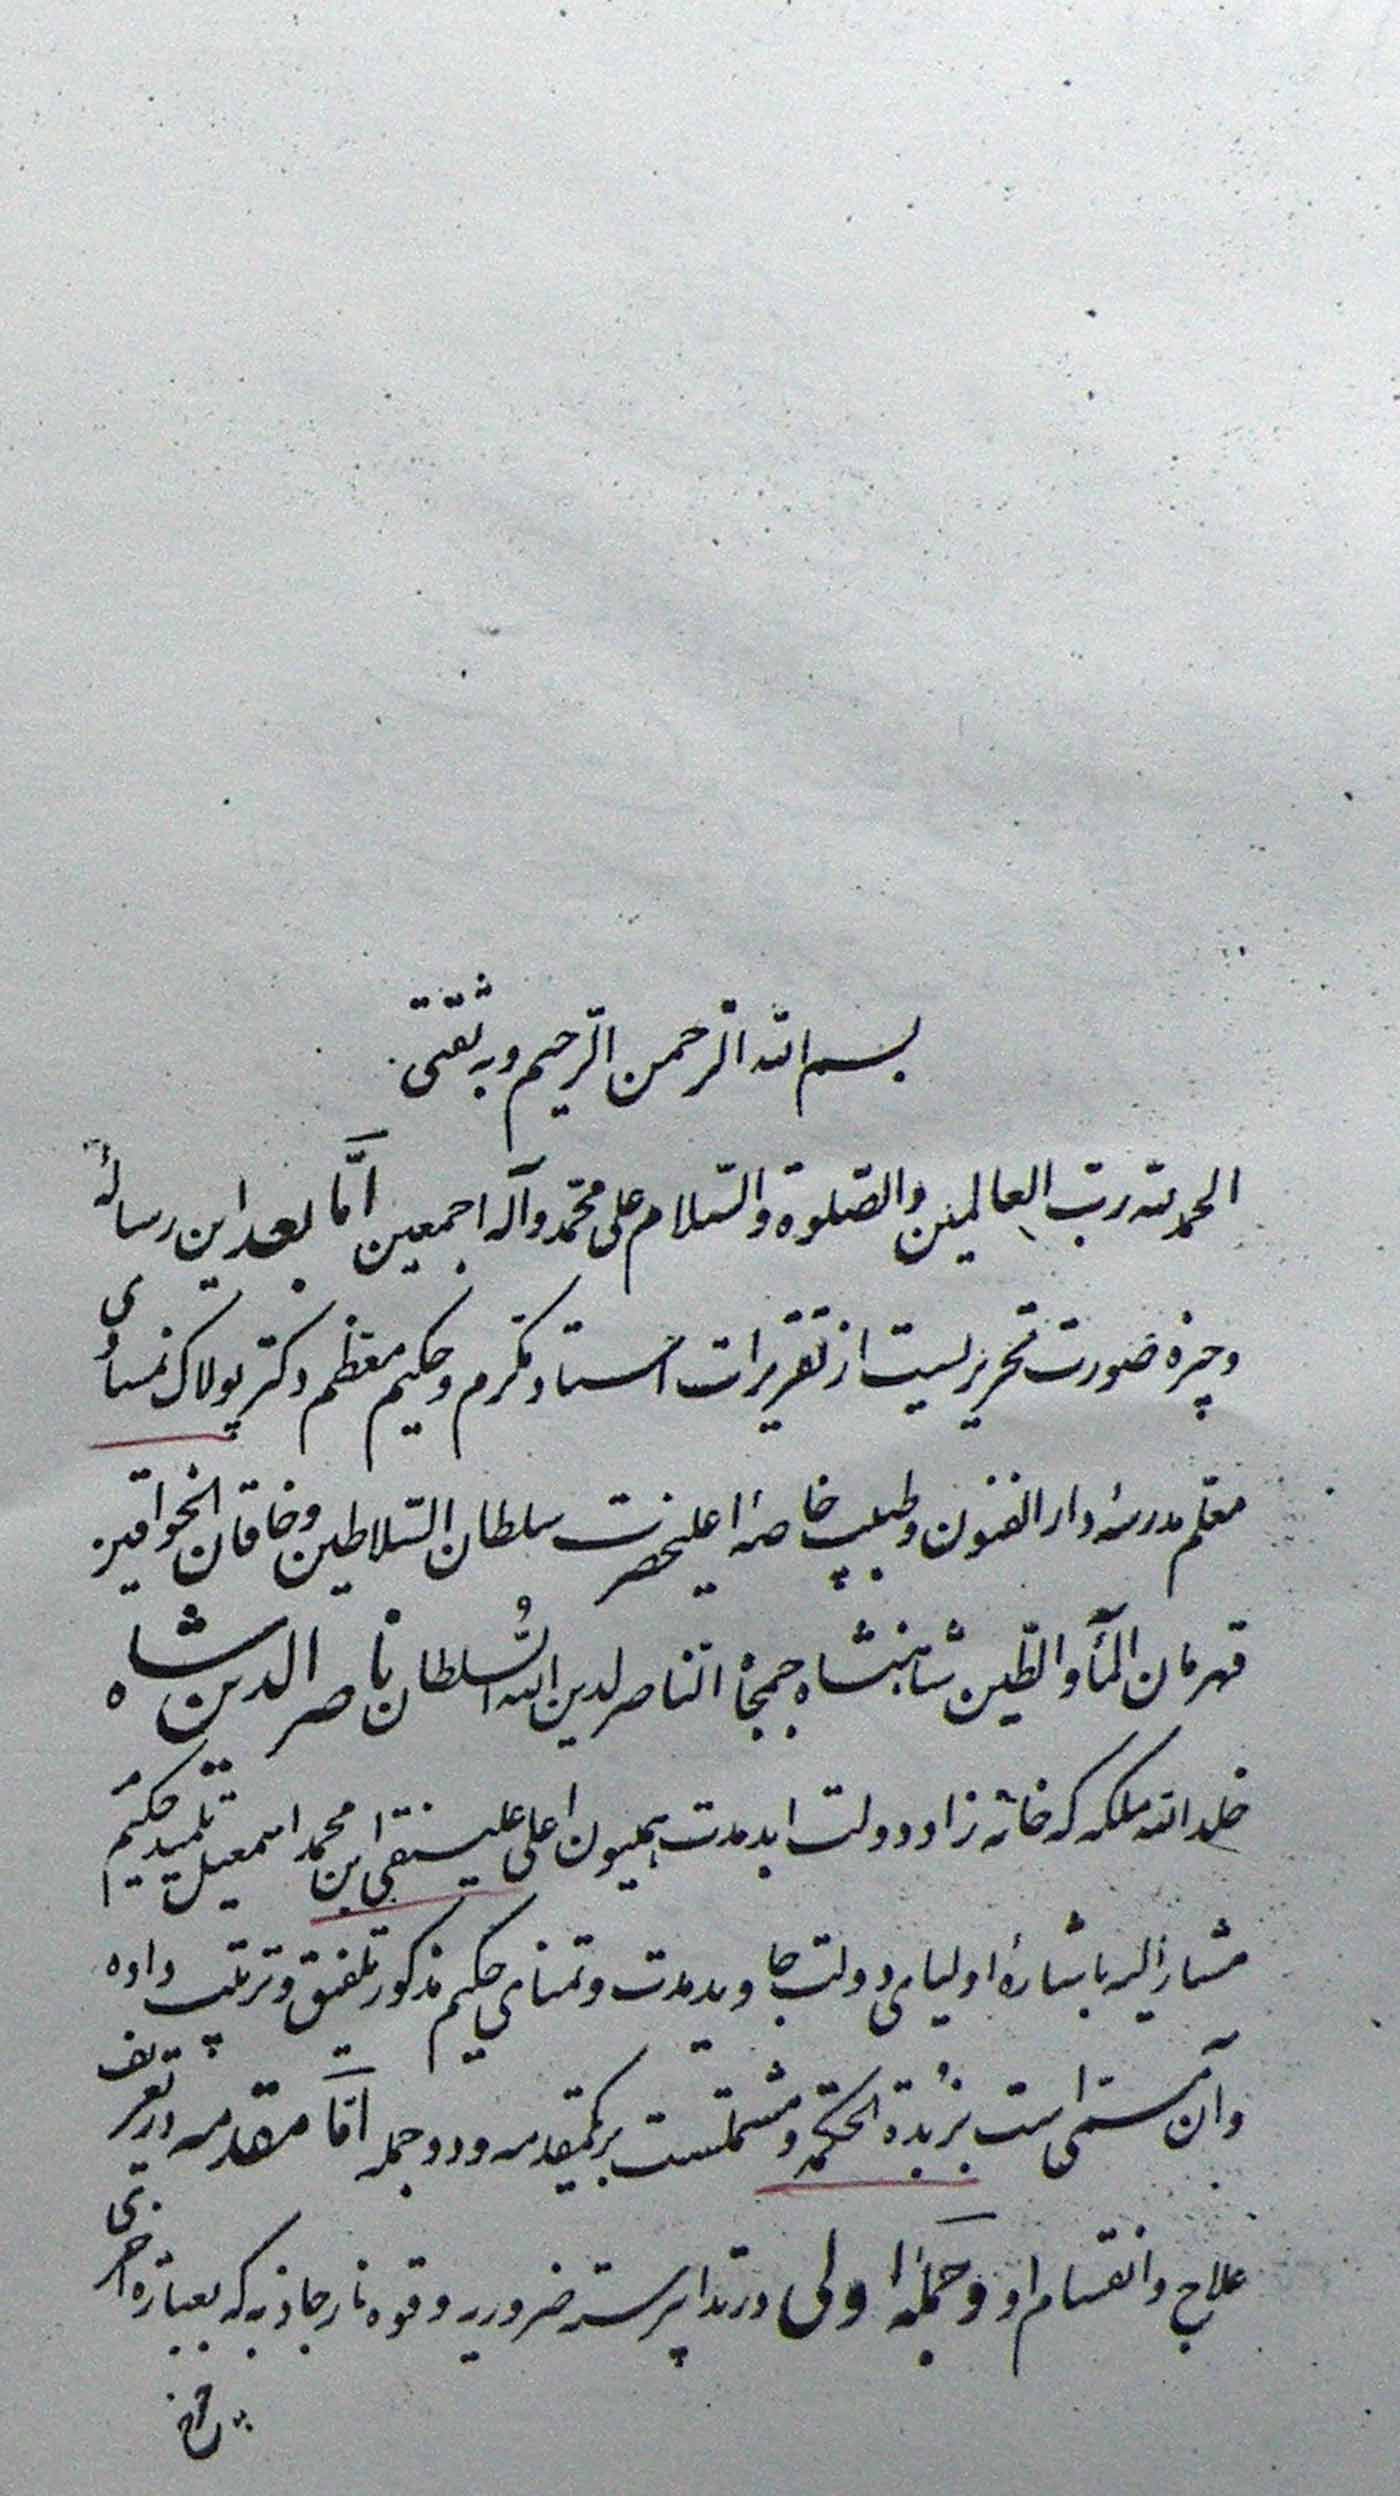 بسم الله الرّحمن الرّحیم وبه ثقتی
الحمد لله ربّ العالمین والصّلوة والسّلام علی محمّد وآله اجمعین امّا بعد این رسالهٔ
وجیزه صورت تحریریست از تقریرات استاد مکرم وحکیم معظم دکتر پولاک نمسأی
معلّم مدرسهٔ دار الفنون وطبیب خاصهٔ اعلیحضرت سلطان السّلاطین وخاقان الخواقین
قهرمان المآء والطّین شاهنشاه جمجاه النّاصر لدین الله السّلطان ناصر الدین شاه
خلد الله ملکه که خانه زاد دولت ابد مدت همیون اعلی علینقی ابن محمد اسمعیل تلمیذ حکیم
مشار الیه باشارهٔ اولیای دولت جاوید مدت وتمنای حکیم مذکور تلفیق وترتیب داده
وآن مسمّی است بزُبدة الحکمّه ومشتملست بریکمقدمه ودو جمله امّا مقدمه در تعریف
علاج وانقسام او وجملهٔ اولی در تدابیر ستهٔ ضروریه وقوه نار جاذبه که بعبارة اخری